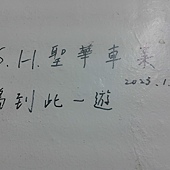 S.H.聖華車業
2023.1
到此一遊